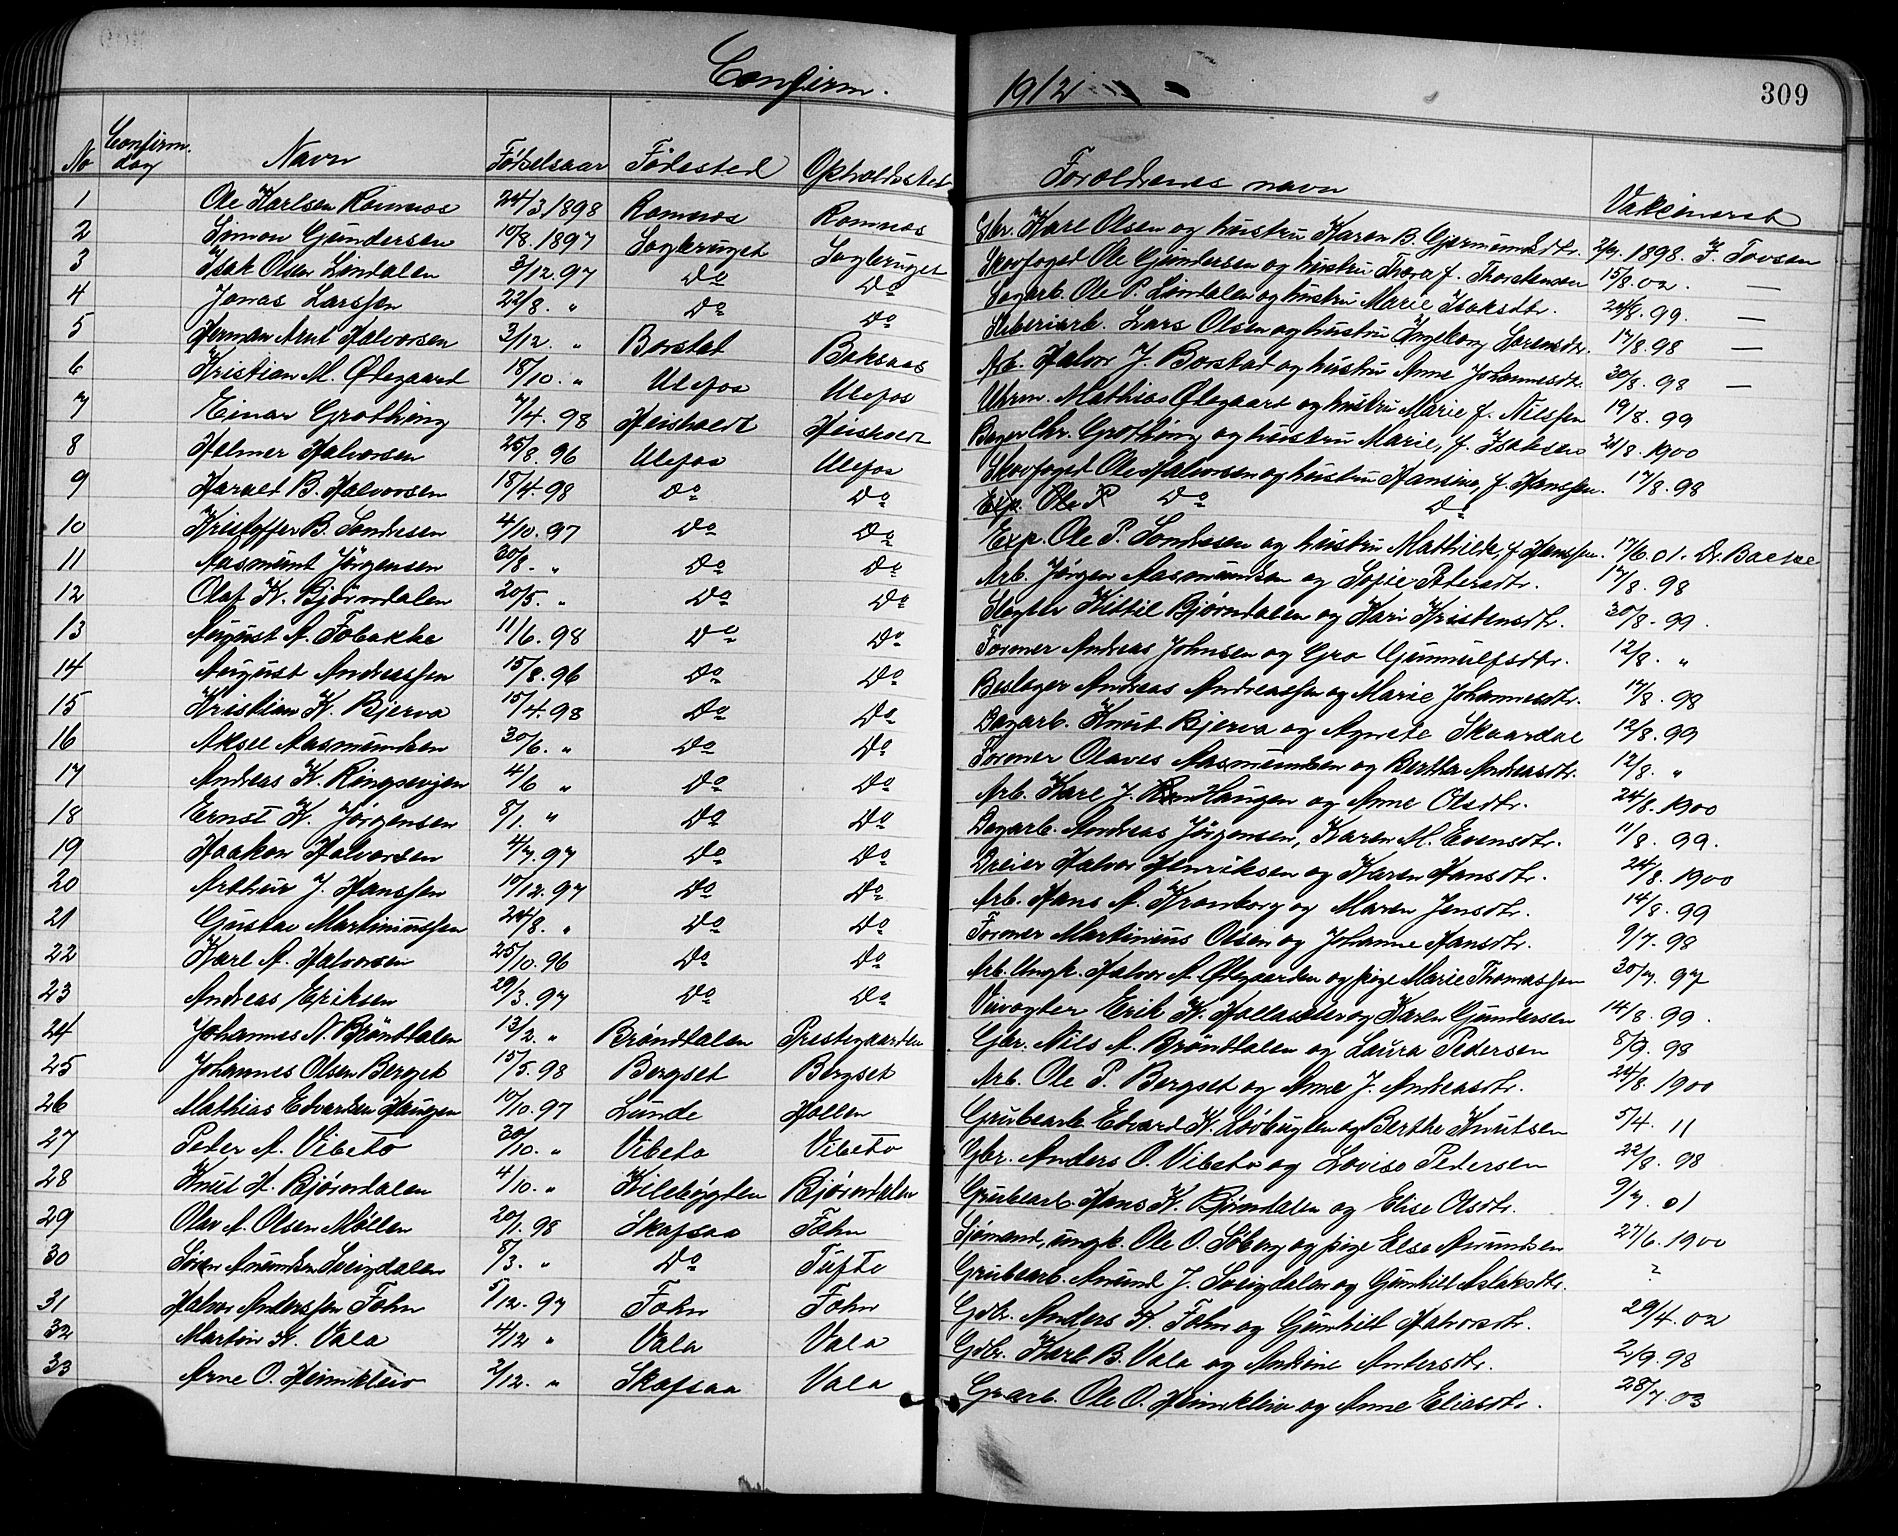 Confirm. 1912 309
No Confirm. dag Navn Fødselsaar Fødested Opholdssted Foreldrenes navn Vaksineret
1 Ole Karlsen Romnes 24/3.1898 Romnes Romnes Gbr. Karl Olsen og hustru Karen B. Gjermundsdtr. 2/9. 1898. F. Tovsen
2 Simon Gundersen 10/8.1897 Sagbruget Sagbruget Skovfoged Ole Gundersen og hustru Thora f. Thorstensen 15/8.02. —
3 Isak Olsen Lindalen 3/12.97 Do Do Sagarb. Ole P. Lindalen og hustru Marie Isaksdtr. 24/8. 99. —
4 Jonas Larssen 22/8. „ Do Do Sliberiarb. Lars Olsen og hustru Ingeborg Larensdtr. 17/8.98 —
5 Herman Arnt Halvorsen 3/12 „ Borstad Baksaas Arb. Halvor J. Borstad og hustru Anne Johannesdtr. 30/8. 98 —
6 Kristian M. Ødegaard 18/10. „ Ulefos Ulefos Uhrm. Mathias Ødegaard og hustru Marie f. Nilssen 19/8. 99
7 Einar Grothing 7/4. 98 Heisholdt Heisholdt Bager Chr. Grothing og hustru Marie, f. Isaksen 21/8.1900
8 Helmer Halvorsen 25/8.96 Ulefos Ulefos Skovfoged Ole Halvorsen og hustru Hansine, f. Hanssen. 17/8.98
9 Harald B. Halvorsen 18/4.98 Do Do Exp. Ole P Do Do
10 Kristoffer B. Sondresen 4/10.97 Do Do Exp. Ole P. Sondresen og hustru Mathilde, f. Hanssen. 17/6.01. Dr. Backe
11 Aasmund Jörgensen 30/8. „ Do Do Arb. Jörgen Aasmundsen og Sofie Petersdtr. 17/8.98
12 Olaf K. Bjørndalen 20/5. „ Do Do Slagter Kittil Bjørndalen og Kari Kristensdtr. 30/8.99.
13 August A. Fobakke 11/6.98 Do Do Former Andreas Johnsen og Gro Gunnulfsdtr. 12/8. „
14 August Andreassen 15/8.96 Do Do Beslager Andreas Andreassen og Marie Johannesdtr. 17/8.98
15 Kristian K. Bjerva 15/4.98 Do Do Dagarb. Knut Bjerva og Agnete Skaardal 12/8.99
16 Aksel Aasmundsen 30/6. „ Do Do Former Olaves Aasmundsen og Berthe Andreasdtr. 12/8. „
17 Andreas K. Ringsevjen 4/6 „ Do Do Arb. Karl J. Haugen og Anne Olsdtr. 24/8.1900
18 Ernst K. Jørgensen 8/1. „ Do Do Dagarb. Andreas Jörgensen, Karen M. Evensdtr. 11/8. 99.
19 Haakon Halvorsen 4/7.97 Do Do Dreier Halvor Henriksen og Karen Hansdtr. 24/8.1900
20 Arthur J. Hanssen 10/12.97 Do Do Arb. Hans A. Kronborg og Maren Jensdtr. 14/8.99
21 Gustav Martiniussen 24/8. „ Do Do Former Martinius Olsen og Johanne Hansdtr. 9/7.98
22 Karl A. Halvorsen 25/10.96 Do Do Arb. Ungk. Halvor A. Ødegaarden og pige Marie Thomassen 30/7.97
23 Andreas Eriksen 29/3.97 Do Do Veivogter Erik K. Hollasæter og Karen Gundersen 14/8.99.
24 Johannes N. Bröndalen 13/2 „ Bröndalen Prestegaarden Gbr. Nils A. Bröndalen og Laura Pedersen 8/9.98
25 Johannes Olsen Berget 15/5.98 Bergset Bergset Arb. Ole P. Bergset og Anne J. Andreasdtr. 24/8.1900
26 Mathias Edvardsen Haugen 10/10.97 Lunde Hollen Grubearb. Edvard K. Løvbugten og Berthe Knutsen 5/4. 11
27 Peder A. Vibeto 30/10. „ Vibeto Vibeto Gbr. Anders O. Vibeto og Lovise Pedersen 22/8.98
28 Knut H. Bjørndalen 4/10. „ Kilebygden Bjørndalen Grubearb. Hans K. Bjørndalen og Elise Olsdtr. 9/7.01
29 Olav A. Olsen Möllen 20/1.98 Skafsaa Fæhn Sjömand, ungk. Ole O. Söberg og pige Else Amundsen 27/6.1900
30 Sören Amundsen Sveigdalen 8/3. „ Do Tufte Grubearb. Amund J. Sveigdalen og Gunhild Aslaksdtr. ?
31 Halvor Anderssen Fæhn 5/12.97 Fæhn Fæhn Gdbr. Anders K. Fæhn og Gunhild Halvorsdtr. 29/4.02
32 Martin K. Vala 4/12 „ Vala Vala Gdbr. Karl B. Vala og Andrine Andersdtr. 2/9.98
33 Arne O. Heimkleiv 2/12. „ Skafsaa Vala Gruarb. Ole O. Heimkleiv og Anne Eliasdtr. 28/7.03